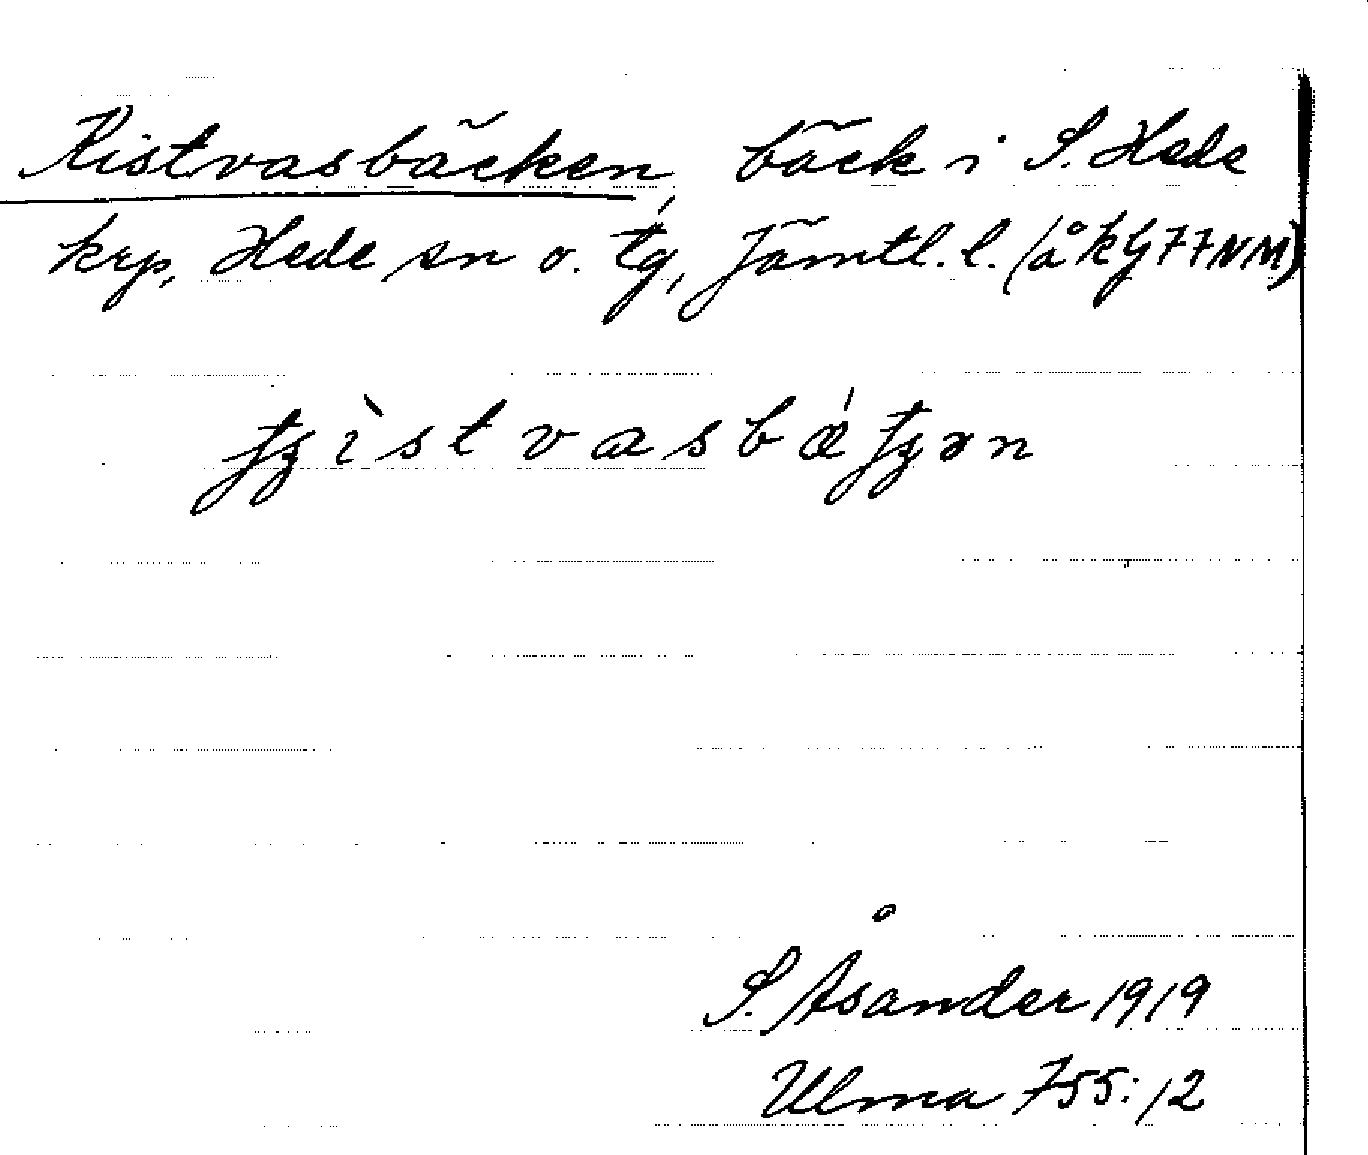 Kistvasbäcken, bäck i S. Hede
krp, Hede sn o. tg, Jämtl.l. (åkG77NM)
ʃʒìstvasbǽʃʒən
S. Åsander 1919
Ulma 755:12